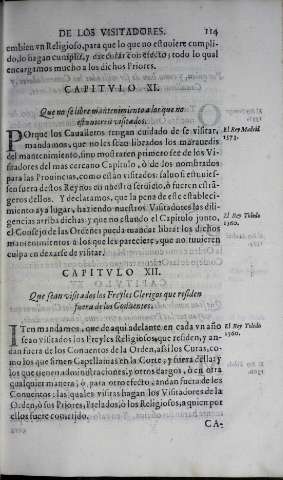 DE LOS VISITADORES. 114
embien vn Religioso, para que lo que no estouiere cumpli-
do, lo hagan cumplir, y executar con efecto; todo lo qual
encargamos mucho a los dichos Priores.
CAPITVLO XI.
Que no se libre mantenimiento a los que no
estuuieren visitados.
PORque los Caualleros tengan cuidado de se visitar,
mandamos, que no les sean librados los marauedis
del mantenimiento, sino mostraren primero fee de los Vi-
sitadores del mas cercano Capitulo, ò de los nombrados
para las Prouincias, como están visitados: saluo si estuuies-
sen fuera destos Reynos en nuestro seruicio, ò fueren estrā-
geros dellos. Y declaramos, que la pena de este estableci-
miento aya lugar, haziendo nuestros Visitadores las dili-
gencias arriba dichas: y que no estando el Capitulo junto,
el Consejo de las Ordenes pueda mandar librar los dichos
mantenimientos à los que les pareciere, que no tuuieren
culpa en dexarse de visitar.
El Rey Madrid
1573.
El Rey Toledo
1560.
CAPITVLO XII.
Que sean visitados los Freyles Clerigos que residen
fuera de los Conuentos.
ITen mandamos, que de aqui adelante en cada vn año
sean visitados los Freyles Religiosos, que residen, y an-
dan fuera de los Conuentos de la Orden, assi los Curas, co-
mo los que siruen Capellanias en la Corte, y fuera della; y
los que tienen administraciones, y otros cargos, ò en otra
qualquier manera; ò para otro efecto andan fuera de los
Conuentos: las quales visitas hagan los Visitadores de la
Orden, ò sus Priores, Prelados, ò los Religiosos, a quien por
ellos fuere cometido.
El Rey Toledo
1560.
CA-